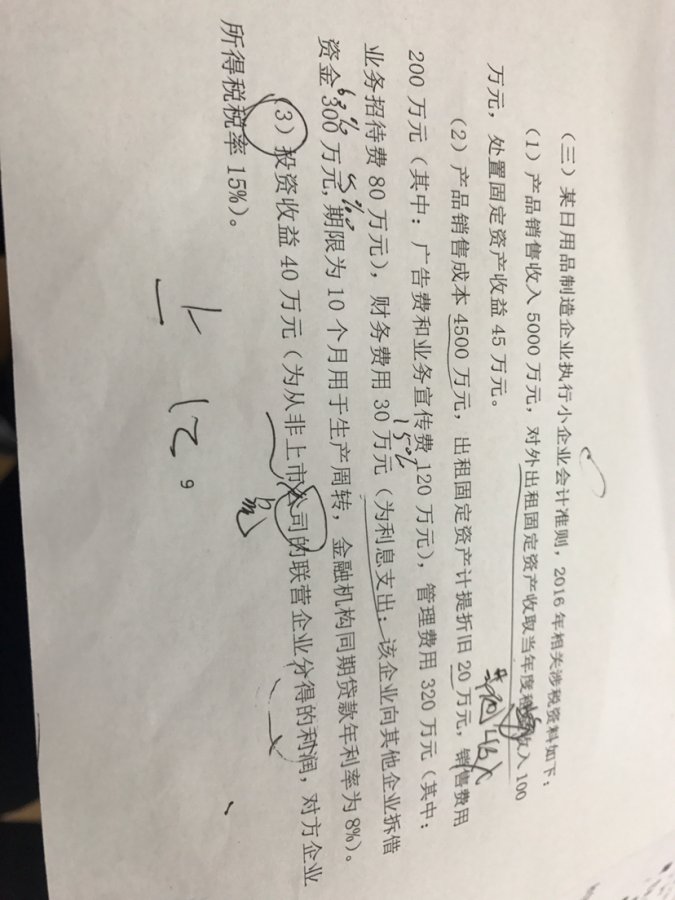 （三）某日用品制造企业执行小企业会计准则，2016 年相关涉税资料如下：
（1）产品销售收入 5000 万元，对外出租固定资产收取当年度租金收入 100
万元，处置固定资产收益 45 万元。
（2）产品销售成本 4500 万元，出租固定资产计提折旧 20 万元，销售费用
200 万元（其中：广告费和业务宣传费 120 万元），管理费用 320 万元（其中：
15%
业务招待费 80 万元），财务费用 30 万元（为利息支出；该企业向其他企业拆借
资金 300 万元，期限为 10 个月用于生产周转，金融机构同期贷款年利率为 8%）。
（3）投资收益 40 万元（为从非上市公司的联营企业分得的利润，对方企业
所得税税率 15%）。